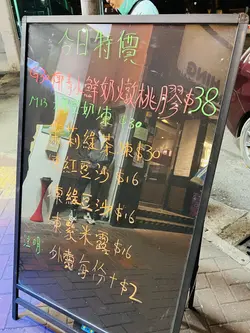 今日特價
椰汁鮮奶燉桃膠$38
奶凍 $30
茉莉綠茶凍$30
紅豆沙$16
綠豆沙$16
米露$16
外賣每份+$2